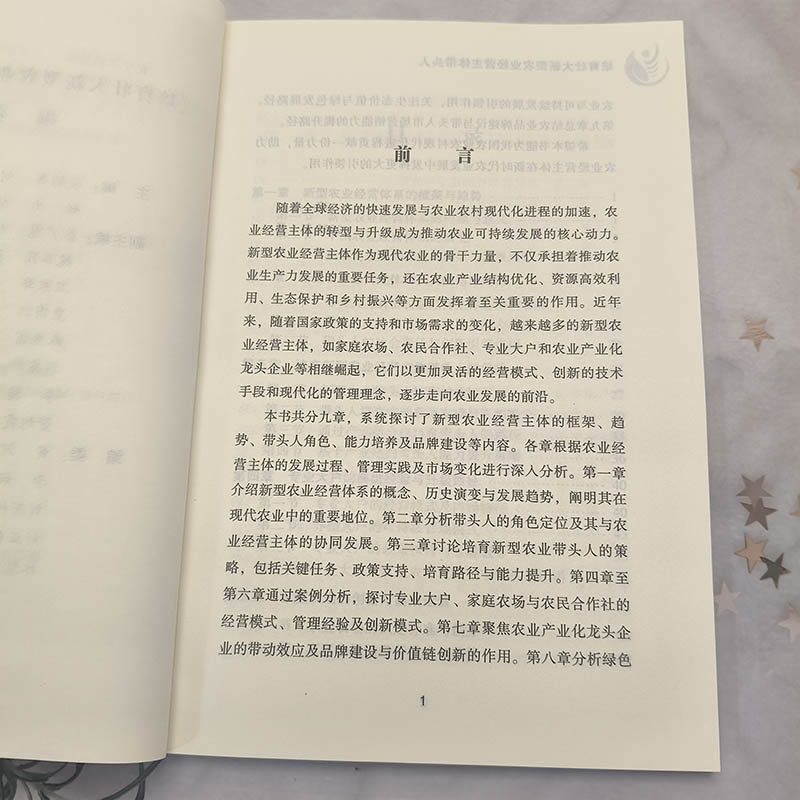 前 言
随着全球经济的快速发展与农业农村现代化进程的加速，农
业经营主体的转型与升级成为推动农业可持续发展的核心动力。
新型农业经营主体作为现代农业的骨干力量，不仅承担着推动农
业生产力发展的重要任务，还在农业产业结构优化、资源高效利
用、生态保护和乡村振兴等方面发挥着至关重要的作用。近年
来，随着国家政策的支持和市场需求的变化，越来越多的新型农
业经营主体，如家庭农场、农民合作社、专业大户和农业产业化
龙头企业等相继崛起，它们以更加灵活的经营模式、创新的技术
手段和现代化的管理理念，逐步走向农业发展的前沿。
本书共分九章，系统探讨了新型农业经营主体的框架、趋
势、带头人角色、能力培养及品牌建设等内容。各章根据农业经
营主体的发展过程、管理实践及市场变化进行深入分析。第一章
介绍新型农业经营体系的概念、历史演变与发展趋势，阐明其在
现代农业中的重要地位。第二章分析带头人的角色定位及其与农
业经营主体的协同发展。第三章讨论培育新型农业带头人的策
略，包括关键任务、政策支持、培育路径与能力提升。第四章至
第六章通过案例分析，探讨专业大户、家庭农场与农民合作社的
经营模式、管理经验及创新模式。第七章聚焦农业产业化龙头企
业的带动效应及品牌建设与价值链创新的作用。第八章分析绿色
1